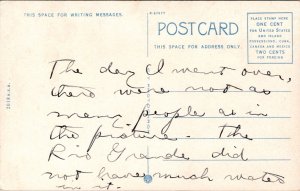 THIS SPACE FOR WRITING MESSAGES.
POST CARD
THIS SPACE FOR ADDRESS ONLY.
PLACE STAMP HERE
ONE CENT
FOR UNITED STATES
AND ISLAND
POSSESSIONS, CUBA,
CANADA AND MEXICO
TWO CENTS
FOR FOREIGN
The day I went over,
there were not as
many people as in
the picture. The
Rio Grande did
not have much water
in it.